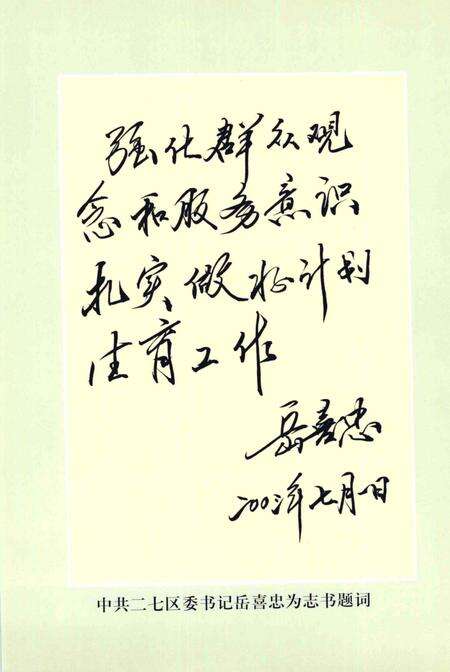 强化群众观
念和服务意识
扎实做好计划
生育工作
岳喜忠
二〇〇二年七月一日
中共二七区委书记岳喜忠为志书题词